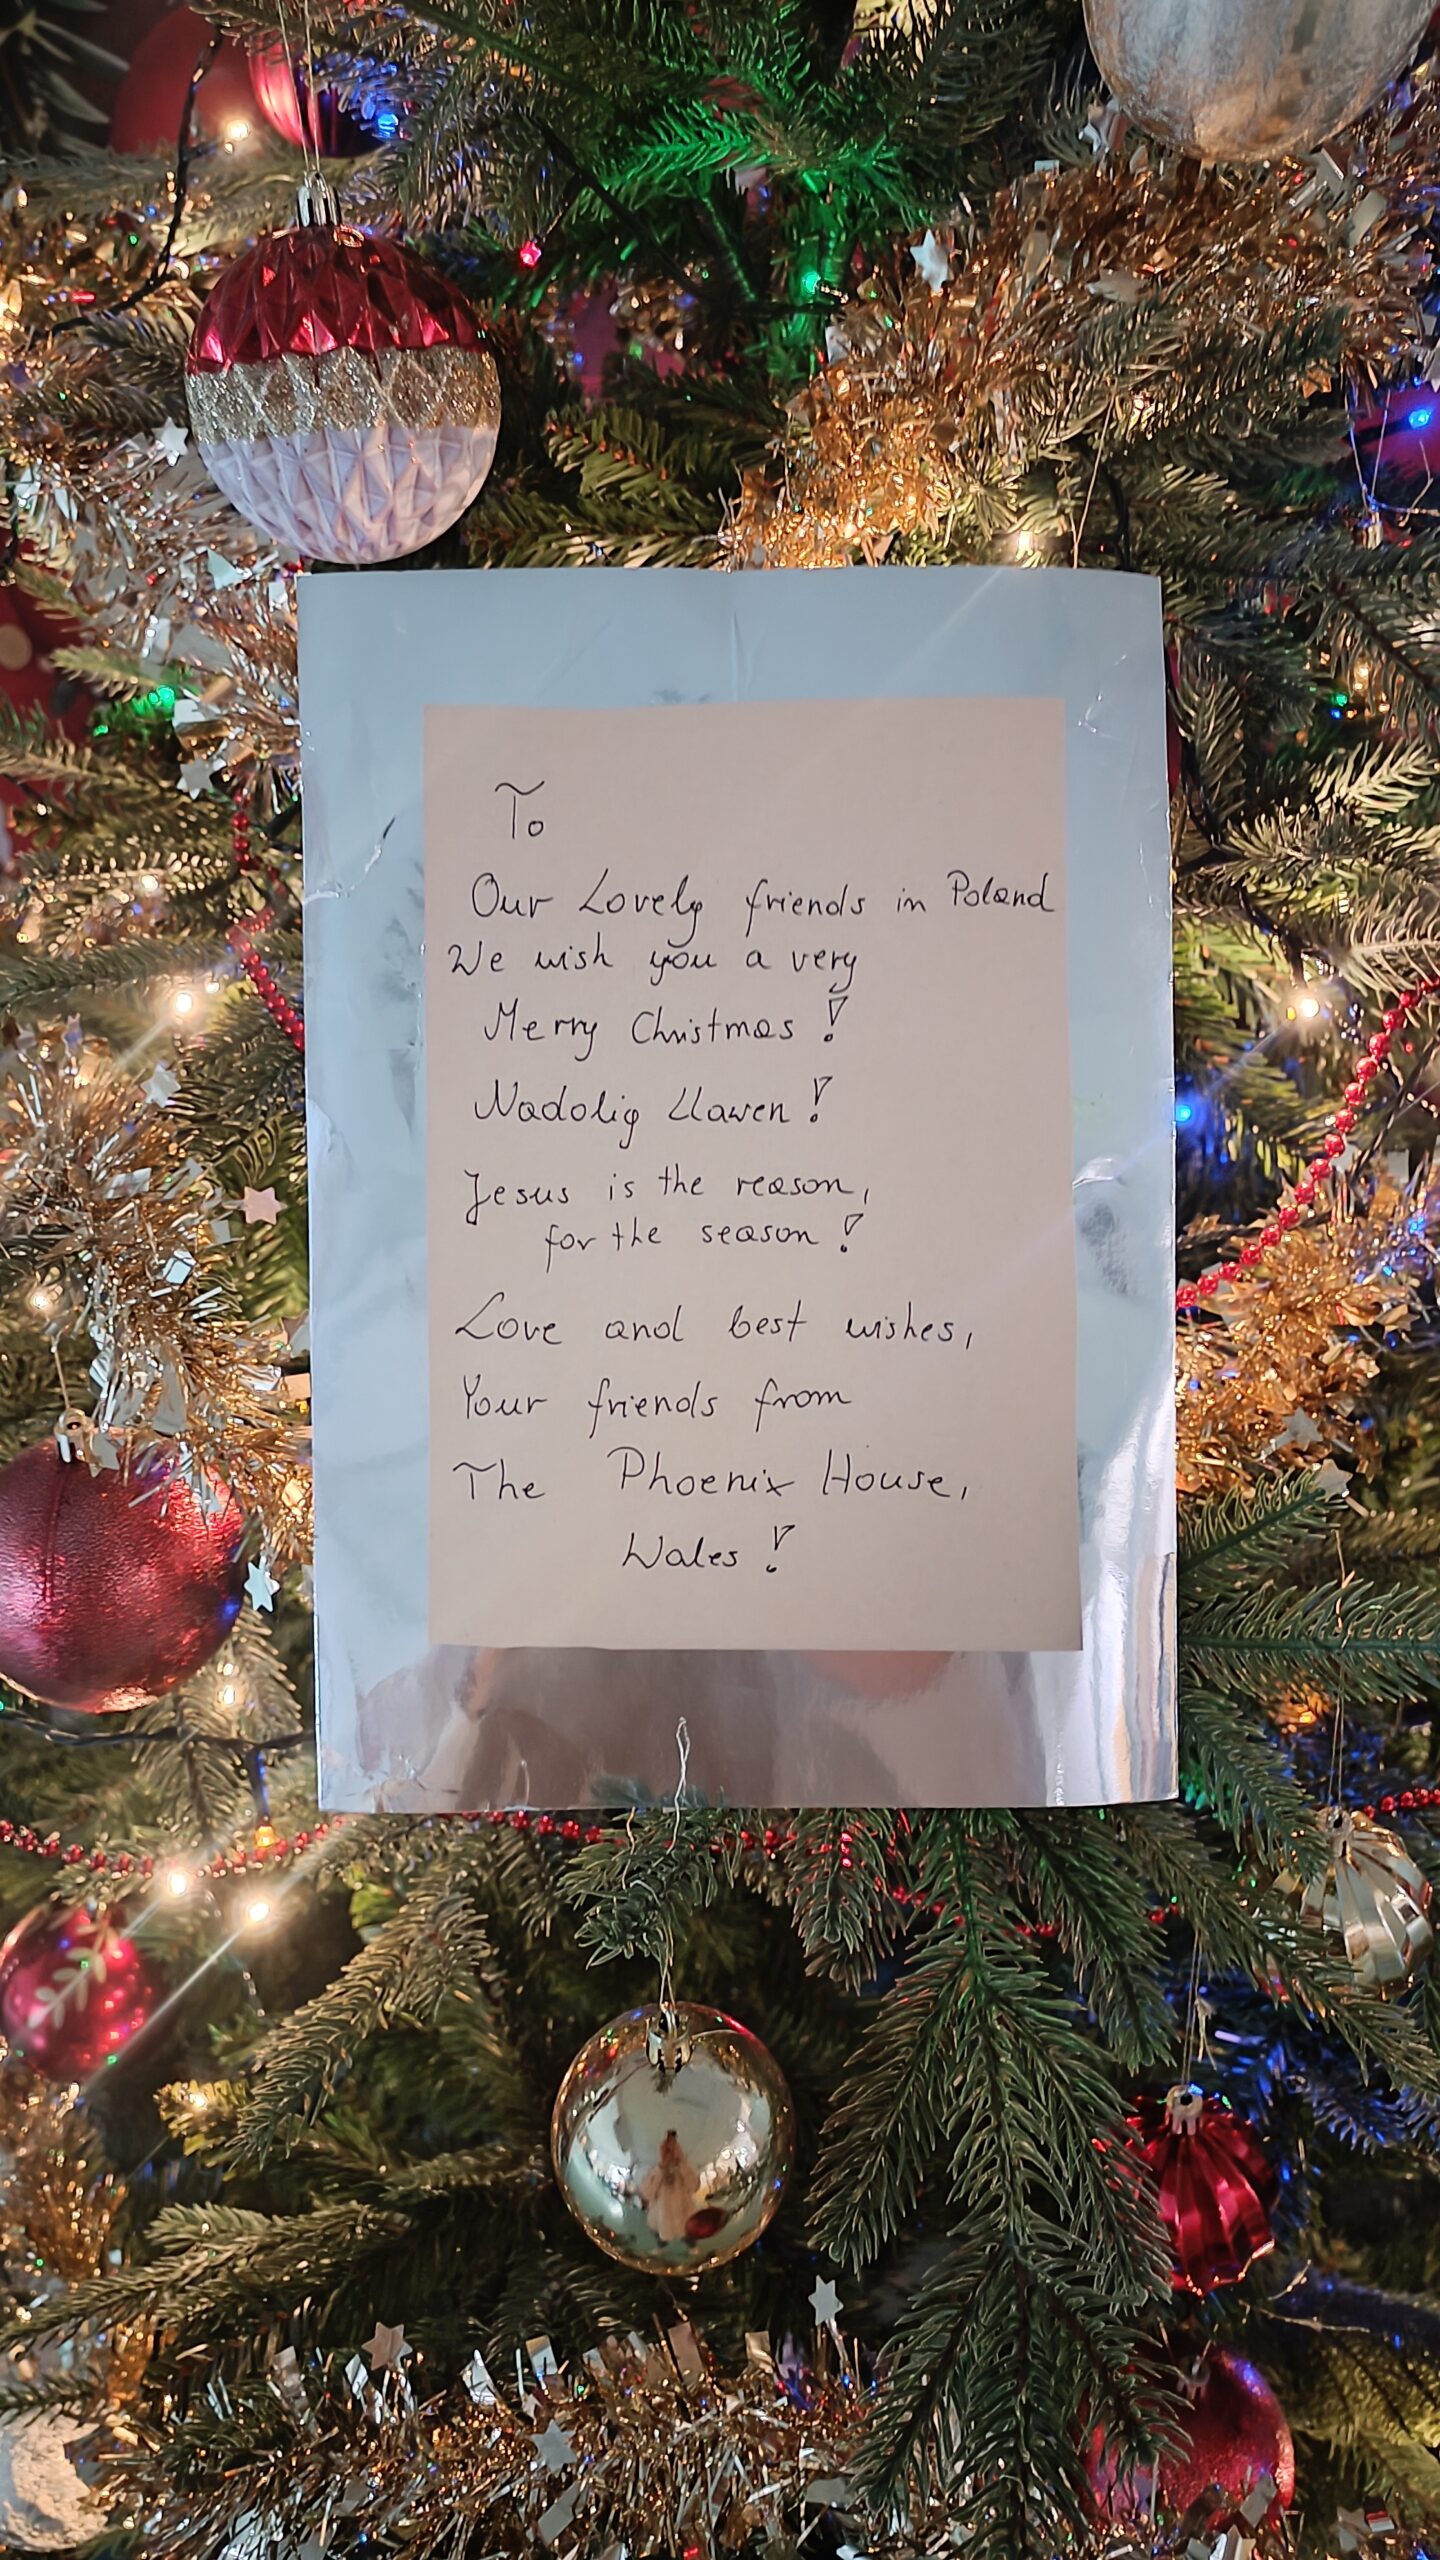 To
Our Lovely friends in Poland
We wish you a very
Merry Christmas!
Nadolig Llawen!
Jesus is the reason,
for the season!
Love and best wishes,
Your friends from
The Phoenix House,
Wales!